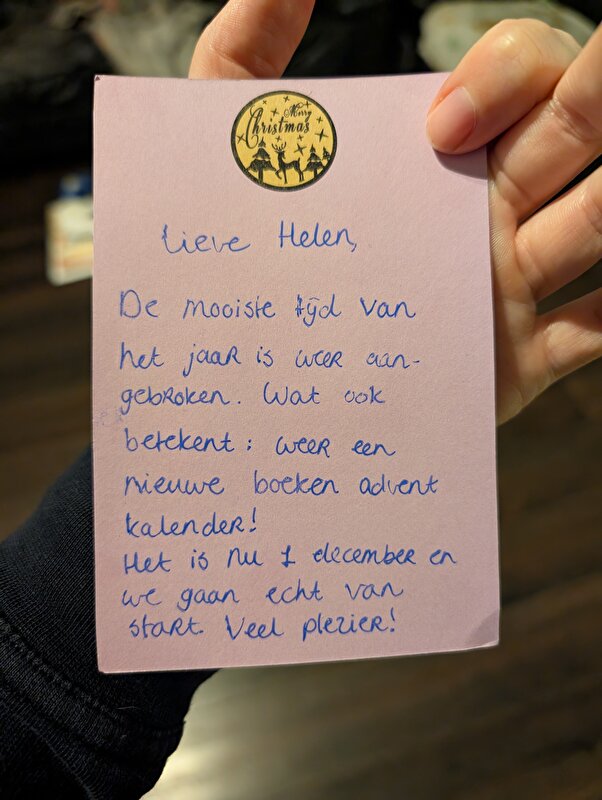 Merry
Christmas
Lieve Helen,
De mooiste tijd van
het jaar is weer aan-
gebroken. Wat ook
betekent: weer een
nieuwe boeken advent
kalender!
Het is nu 1 december en
we gaan echt van
start. Veel plezier!